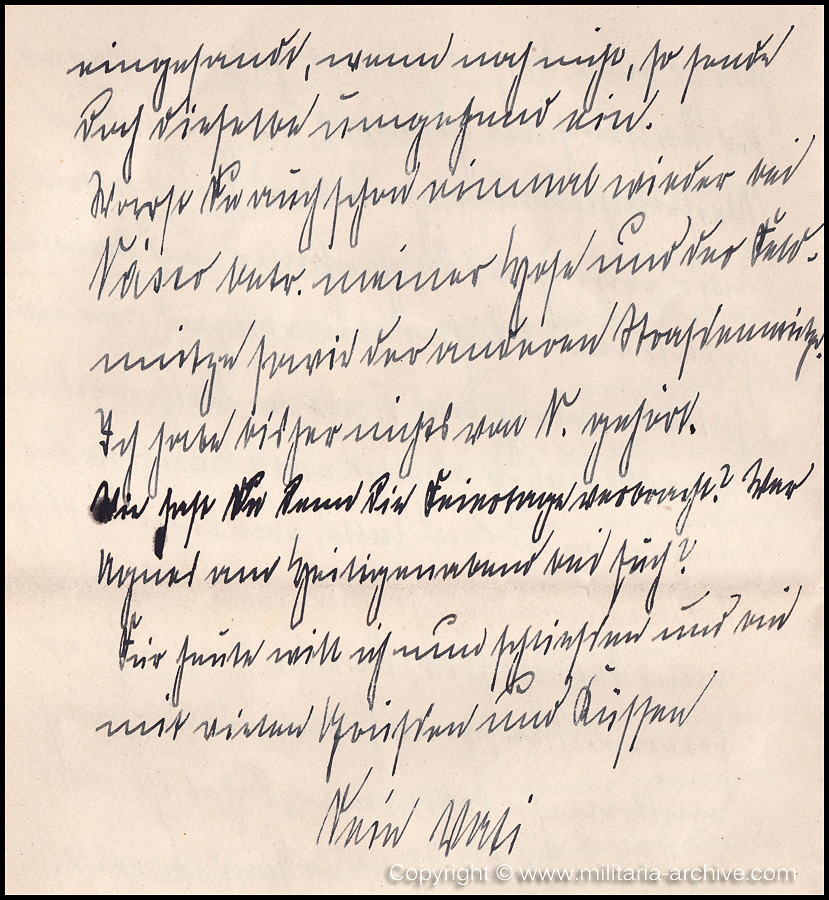 eingesandt, wenn noch nicht, so sende
doch dieselbe umgehend ein.
Warst Du auch schon einmal wieder bei
betr. meiner Hose und der Feld-
mütze sowie der anderen Strassenmütze.
Ich habe bisher nichts von N. gehört.
Wie hast Du denn die Feiertage verbracht? War
Agnes am Heiligenabend bei Euch?
Für heute will ich nun schliessen und bin
mit vielen Grüssen und Küssen
Dein Vati
Copyright © www.militaria-archive.com